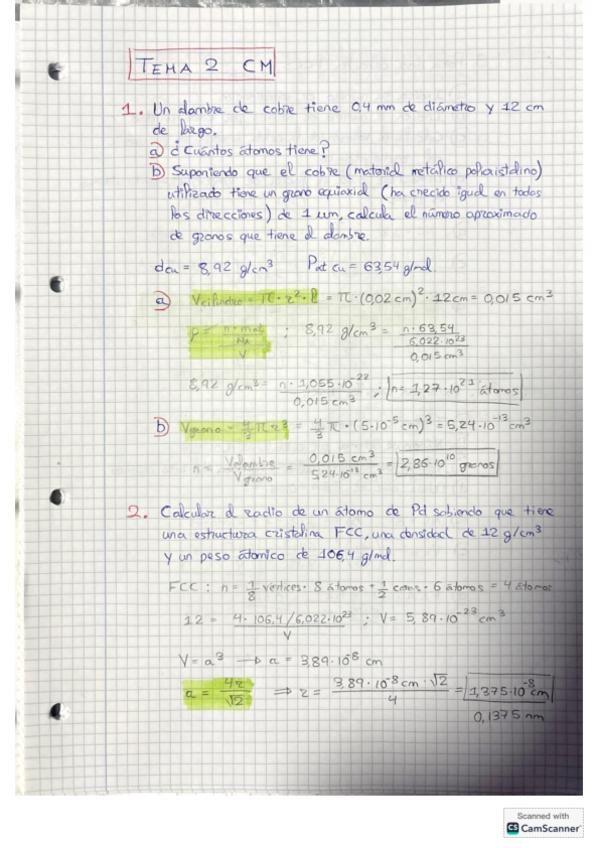 TEMA 2 CM
1. Un alambre de cobre tiene 0,4 mm de diámetro y 12 cm
de largo.
a) ¿Cuántos átomos tiene?
b) Suponiendo que el cobre (material metálico policristalino)
utilizado tiene un grano equiaxial (ha crecido igual en todas
las direcciones) de 1 um, calcula el número aproximado
de granos que tiene el alambre.
dcu = 8,92 g/cm³ Pat cu = 63,54 g/mol
a) Vcilindro = π · r² · l = π · (0,02 cm)² · 12cm = 0,015 cm³
ρ = (n · mat / NA) / V ; 8,92 g/cm³ = (n · 63,54 / 6,022 · 10²³) / 0,015 cm³
8,92 g/cm³ = n · 1,055 · 10⁻²² / 0,015 cm³ ; n = 1,27 · 10²¹ átomos
b) Vgrano = 4/3 π r³ = 4/3 π · (5 · 10⁻⁵ cm)³ = 5,24 · 10⁻¹³ cm³
n = Valambre / Vgrano = 0,015 cm³ / 5,24 · 10⁻¹³ cm³ = 2,86 · 10¹⁰ granos
2. Calcular el radio de un átomo de Pd sabiendo que tiene
una estructura cristalina FCC, una densidad de 12 g/cm³
y un peso átomico de 106,4 g/mol.
FCC : n = 1/8 vértices · 8 átomos + 1/2 caras · 6 átomos = 4 átomos
12 = 4 · 106,4 / 6,022 · 10²³ / V ; V = 5,89 · 10⁻²³ cm³
V = a³ → a = 3,89 · 10⁻⁸ cm
a = 4r / √2 ⇒ r = 3,89 · 10⁻⁸ cm · √2 / 4 = 1,375 · 10⁻⁸ cm
0,1375 nm
Scanned with
CS CamScanner